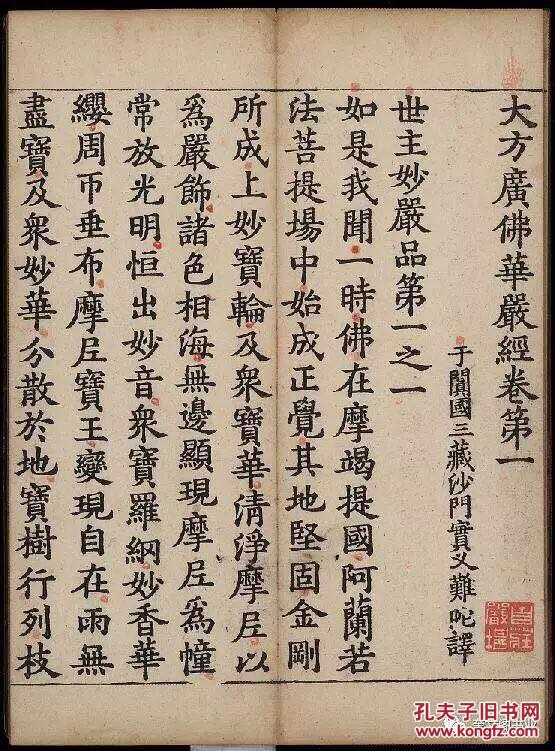 大方廣佛華嚴經卷第一
于闐國三藏沙門實叉難陀譯
世主妙嚴品第一之一
如是我聞一時佛在摩竭提國阿蘭若
法菩提場中始成正覺其地堅固金剛
所成上妙寶輪及衆寶華清淨摩尼以
爲嚴飾諸色相海無邊顯現摩尼爲幢
常放光明恒出妙音衆寶羅網妙香華
纓周帀垂布摩尼寶王變現自在雨無
盡寶及衆妙華分散於地寶樹行列枝
孔夫子旧书网
www.kongfz.com